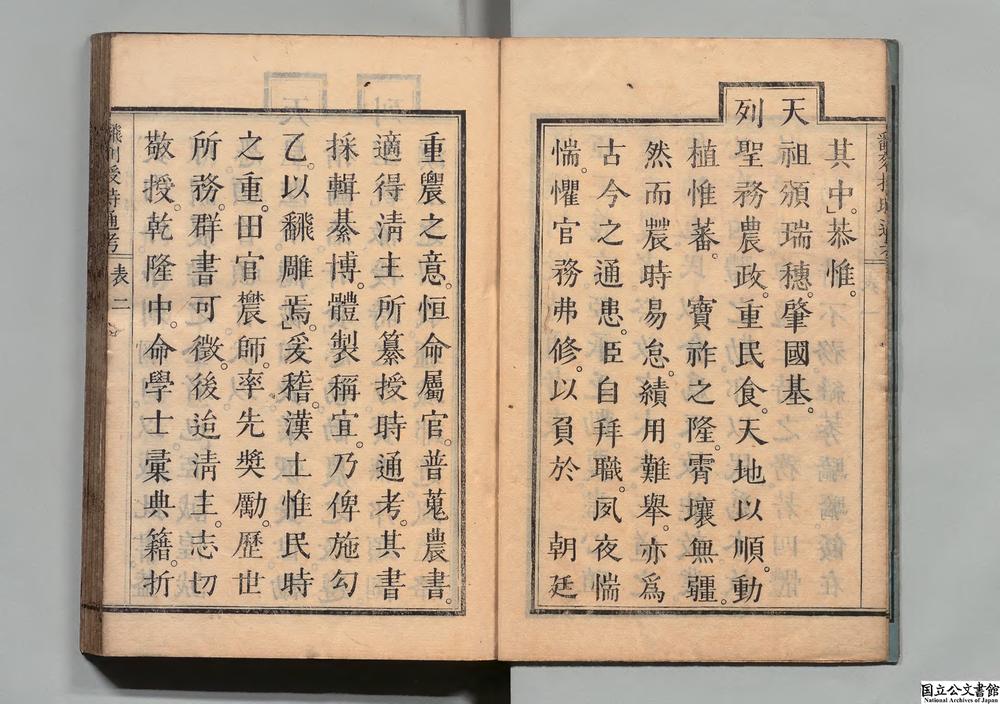 其中。恭惟。
天祖頒瑞穗。肇國基。
列聖務農政。重民食。天地以順。動
植惟蕃。寶祚之隆。霄壤無疆。
然而農時易怠。績用難舉。亦爲
古今之通患。臣自拜職。夙夜惴
惴。懼官務弗修。以負於 朝廷
重農之意。恒命屬官。普蒐農書。
適得淸主所纂授時通考。其書
採輯綦博。體製稱宜。乃俾施勾
乙。以飜雕焉。爰稽漢土惟民時
之重。田官農師。率先奬勵。歷世
所務。群書可徵。後迨淸主。志切
敬授。乾隆中。命學士彙典籍。折
飜刻授時通考 表 二
国立公文書館
National Archives of Japan